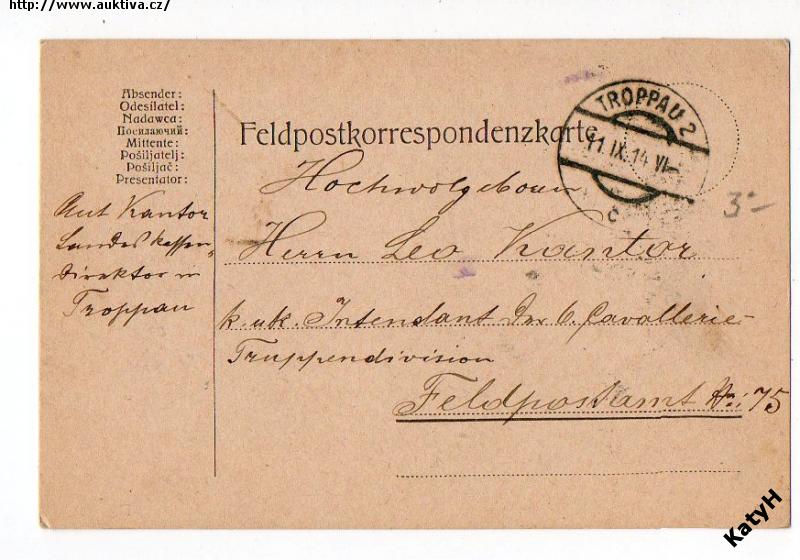 http://www.auktiva.cz/
Absender:
Odesílatel:
Nadawca:
Посилаючий:
Mittente:
Pošiljatelj:
Pošiljač:
Presentator:
Ant Kantor
Landes kassen„
direktor in
Troppau
Feldpostkorrespondenzkarte
TROPPAU 2
11. IX. 14. VI
c
Hochwolgeboren
Herrn Leo Kantor
k. uk. Intendant der 6. Cavallerie-
Truppendivision
Feldpostamt Nr: 75
3-
KatyH